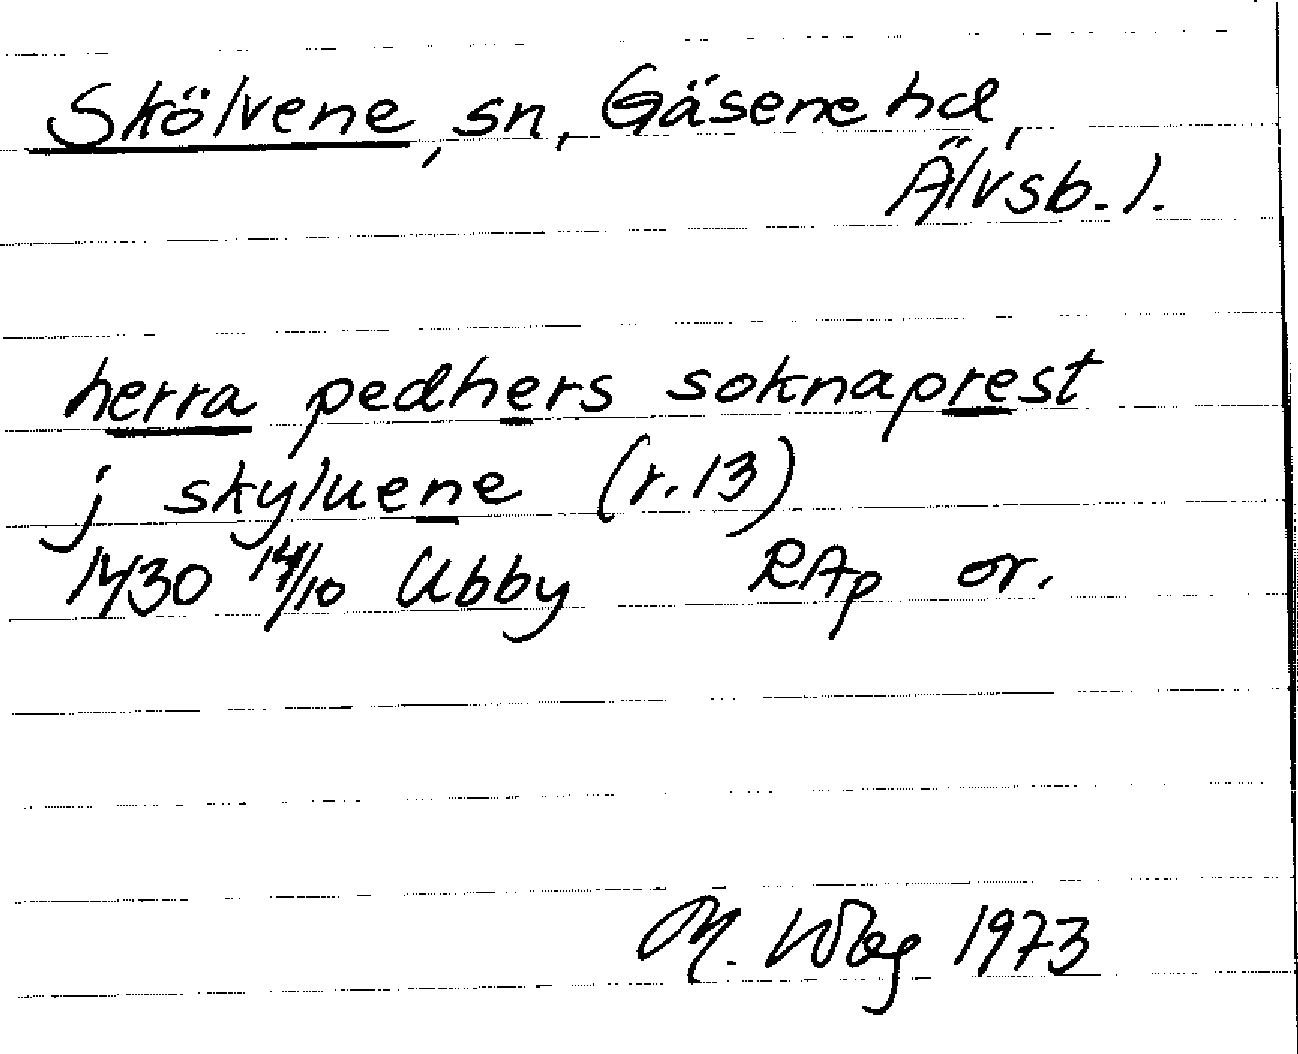 Skölvene, sn, Gäsene hd,
Älvsb. l.
herra pedhers soknaprest
j skyluene (r.13)
1430 14/10 Ubby RAp or.
M. 1973